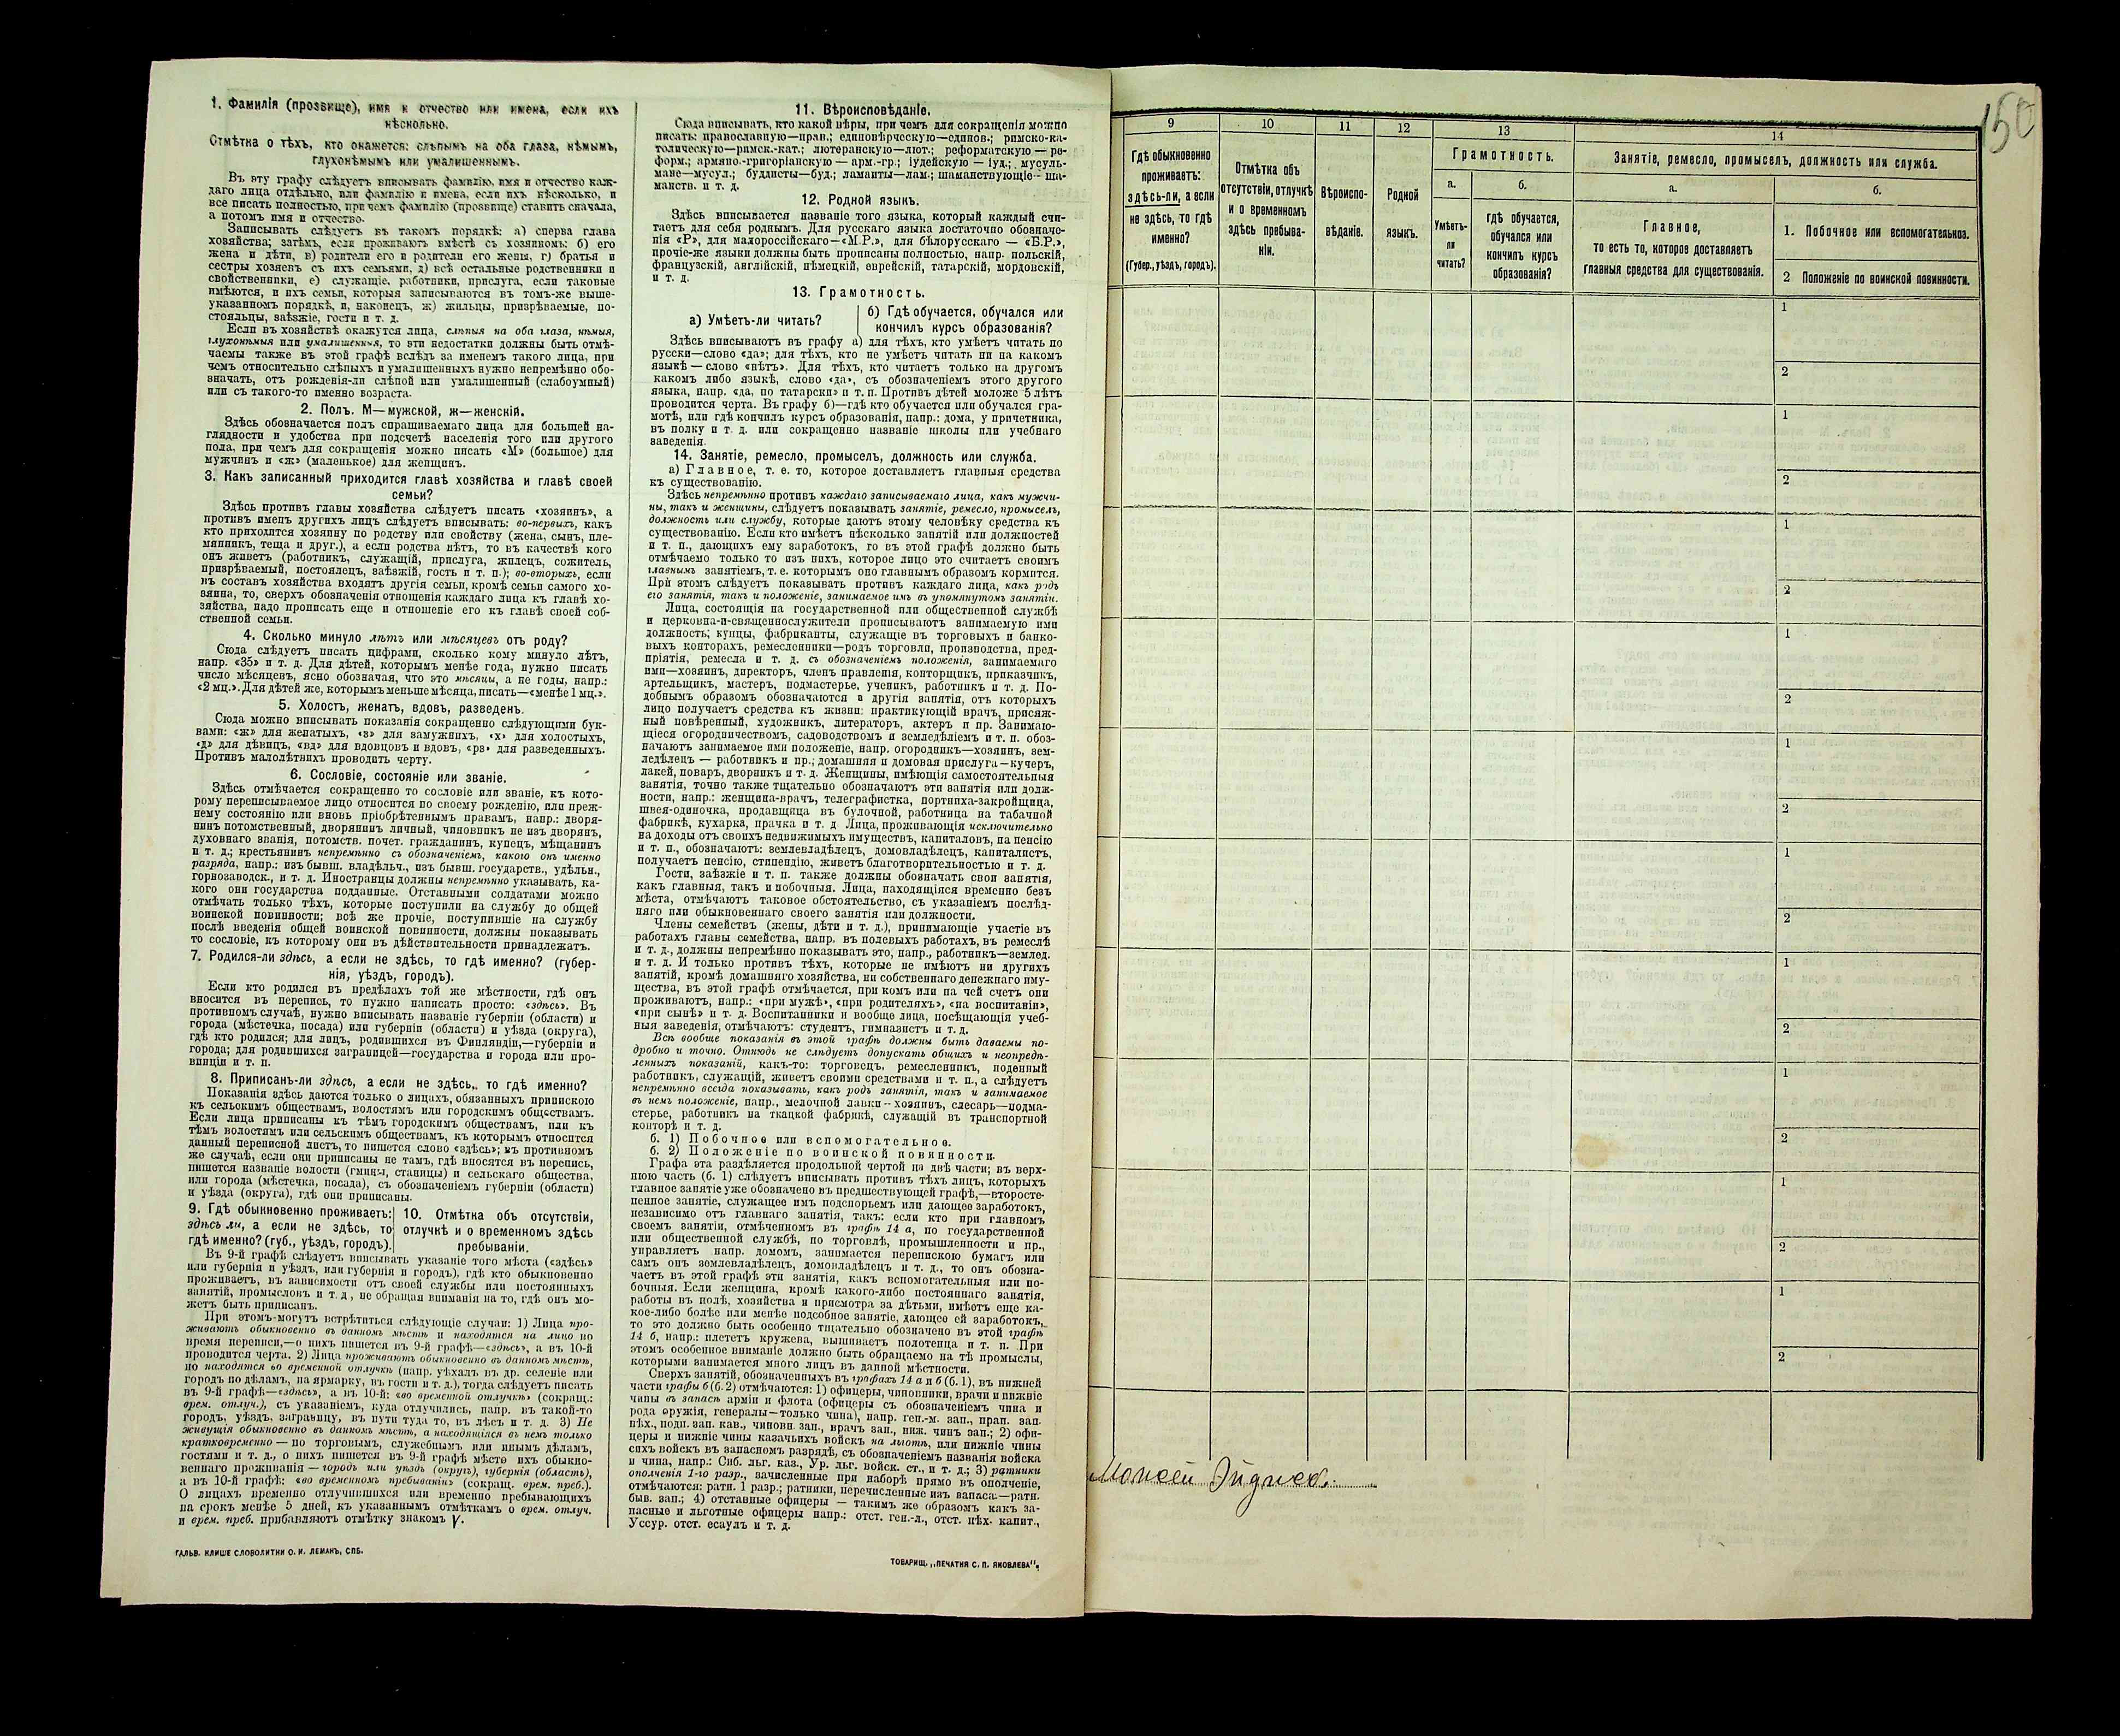 1. Фамилія (прозвище), имя и отчество или имена, если ихъ
нѣсколько.
Отмѣтка о тѣхъ, кто окажется: слѣпымъ на оба глаза, нѣмымъ,
глухонѣмымъ или умалишеннымъ.
Въ эту графу слѣдуетъ вписывать фамилію, имя и отчество каж-
даго лица отдѣльно, или фамилію и имена, если ихъ нѣсколько, и
все писать полностью, при чемъ фамилію (прозвище) ставить сначала,
а потомъ имя и отчество.
Записывать слѣдуетъ въ такомъ порядкѣ: а) сперва глава
хозяйства; затѣмъ, если проживаютъ вмѣстѣ съ хозяиномъ: б) его
жена и дѣти, в) родители его и родители его жены, г) братья и
сестры хозяевъ съ ихъ семьями, д) всѣ остальные родственники и
свойственники, е) служащіе, работники, прислуга, если таковые
имѣются, и ихъ семьи, которыя записываются въ томъ-же выше-
указанномъ порядкѣ, и, наконецъ, ж) жильцы, призрѣваемые, по-
стояльцы, заѣзжіе, гости и т. п.
Если въ хозяйствѣ окажутся лица, слѣпыя на оба глаза, нѣмыя,
глухонѣмыя или умалишенныя, то эти недостатки должны быть отмѣ-
чаемы также въ этой графѣ вслѣдъ за именемъ такого лица, при
чемъ относительно слѣпыхъ и умалишенныхъ нужно непремѣнно обо-
значать, отъ рожденія-ли слѣпой или умалишенный (слабоумный)
или съ такого-то именно возраста.
2. Полъ. М—мужской, ж—женскій.
Здѣсь обозначается полъ спрашиваемаго лица для большей на-
глядности и удобства при подсчетѣ населенія того или другого
пола, при чемъ для сокращенія можно писать «М» (большое) для
мужчинъ и «ж» (маленькое) для женщинъ.
3. Какъ записанный приходится главѣ хозяйства и главѣ своей
семьи?
Здѣсь противъ главы хозяйства слѣдуетъ писать «хозяинъ», а
противъ именъ другихъ лицъ слѣдуетъ вписывать: во-первыхъ, какъ
кто приходится хозяину по родству или свойству (жена, сынъ, пле-
мянникъ, теща и друг.), а если родства нѣтъ, то въ качествѣ кого
онъ живетъ (работникъ, служащій, прислуга, жилецъ, сожитель,
призрѣваемый, постоялецъ, заѣзжій, гость и т. п.); во-вторыхъ, если
въ составъ хозяйства входятъ другія семьи, кромѣ семьи самого хо-
зяина, то, сверхъ обозначенія отношенія каждаго лица къ главѣ хо-
зяйства, надо прописать еще и отношеніе его къ главѣ своей соб-
ственной семьи.
4. Сколько минуло лѣтъ или мѣсяцевъ отъ роду?
Сюда слѣдуетъ писать цифрами, сколько кому минуло лѣтъ,
напр. «35» и т. д. Для дѣтей, которымъ менѣе года, нужно писать
число мѣсяцевъ, ясно обозначая, что это мѣсяцы, а не годы, напр.:
«2 мц.». Для дѣтей же, которымъ меньше мѣсяца, писать—«менѣе 1 мц.».
5. Холостъ, женатъ, вдовъ, разведенъ.
Сюда можно вписывать показанія сокращенно слѣдующими бук-
вами: «ж» для женатыхъ, «з» для замужнихъ, «х» для холостыхъ,
«д» для дѣвицъ, «вд» для вдовцовъ и вдовъ, «рз» для разведенныхъ.
Противъ малолѣтнихъ проводить черту.
6. Сословіе, состояніе или званіе.
Здѣсь отмѣчается сокращенно то сословіе или званіе, къ кото-
рому переписываемое лицо относится по своему рожденію, или преж-
нему состоянію или вновь пріобрѣтеннымъ правамъ, напр.: дворя-
нинъ потомственный, дворянинъ личный, чиновникъ не изъ дворянъ,
духовнаго званія, потомств. почет. гражданинъ, купецъ, мѣщанинъ
и т. д.; крестьянинъ непремѣнно съ обозначеніемъ, какого онъ именно
разряда, напр.: изъ бывш. владѣльч., изъ бывш. государств., удѣльн.,
горнозаводск., и т. д. Иностранцы должны непремѣнно указывать, ка-
кого они государства подданные. Отставными солдатами можно
отмѣчать только тѣхъ, которые поступили на службу до общей
воинской повинности; всѣ же прочіе, поступившіе на службу
послѣ введенія общей воинской повинности, должны показывать
то сословіе, къ которому они въ дѣйствительности принадлежатъ.
7. Родился-ли здѣсь, а если не здѣсь, то гдѣ именно? (губер-
нія, уѣздъ, городъ).
Если кто родился въ предѣлахъ той же мѣстности, гдѣ онъ
вносится въ перепись, то нужно написать просто: «здѣсь». Въ
противномъ случаѣ, нужно вписывать названіе губерніи (области) и
города (мѣстечка, посада) или губерніи (области) и уѣзда (округа),
гдѣ кто родился; для лицъ, родившихся въ Финляндіи,—губерніи и
города; для родившихся заграницей—государства и города или про-
винціи и т. п.
8. Приписанъ-ли здѣсь, а если не здѣсь, то гдѣ именно?
Показанія здѣсь даются только о лицахъ, обязанныхъ припискою
къ сельскимъ обществамъ, волостямъ или городскимъ обществамъ.
Если лица приписаны къ тѣмъ городскимъ обществамъ, или къ
тѣмъ волостямъ или сельскимъ обществамъ, къ которымъ относится
данный переписной листъ, то пишется слово «здѣсь»; въ противномъ
же случаѣ, если они приписаны не тамъ, гдѣ вносятся въ перепись,
пишется названіе волости (гмины, станицы) и сельскаго общества,
или города (мѣстечка, посада), съ обозначеніемъ губерніи (области)
и уѣзда (округа), гдѣ они приписаны.
9. Гдѣ обыкновенно проживаетъ:
здѣсь ли, а если не здѣсь, то
гдѣ именно? (губ., уѣздъ, городъ).
10. Отмѣтка объ отсутствіи,
отлучкѣ и о временномъ здѣсь
пребываніи.
Въ 9-й графѣ слѣдуетъ вписывать указаніе того мѣста («здѣсь»
или губернія и уѣздъ, или губернія и городъ), гдѣ кто обыкновенно
проживаетъ, въ зависимости отъ своей службы или постоянныхъ
занятій, промысловъ и т. д., не обращая вниманія на то, гдѣ онъ мо-
жетъ быть приписанъ.
При этомъ могутъ встрѣтиться слѣдующіе случаи: 1) Лица про-
живаютъ обыкновенно въ данномъ мѣстѣ и находятся на лицо во
время переписи,—о нихъ пишется въ 9-й графѣ—«здѣсь», а въ 10-й
проводится черта. 2) Лица проживаютъ обыкновенно въ данномъ мѣстѣ,
но находятся во временной отлучкѣ (напр. уѣхалъ въ др. селеніе или
городъ по дѣламъ, на ярмарку, въ гости и т. д.), тогда слѣдуетъ писать
въ 9-й графѣ—«здѣсь», а въ 10-й: «во временной отлучкѣ» (сокращ.:
врем. отлуч.), съ указаніемъ, куда отлучились, напр. въ такой-то
городъ, уѣздъ, заграницу, въ пути туда то, въ лѣсъ и т. д. 3) Не
живущія обыкновенно въ данномъ мѣстѣ, а находящіяся въ немъ только
кратковременно — по торговымъ, служебнымъ или инымъ дѣламъ,
гостями и т. д., о нихъ пишется въ 9-й графѣ мѣсто ихъ обыкно-
веннаго проживанія — городъ или уѣздъ (округъ), губернія (область),
а въ 10-й графѣ: «во временномъ пребываніи» (сокращ. врем. преб.).
О лицахъ временно отлучившихся или временно пребывающихъ
на срокъ менѣе 5 дней, къ указаннымъ отмѣткамъ о врем. отлуч.
и врем. преб. прибавляютъ отмѣтку знакомъ V.
ГАЛЬВ. КЛИШЕ СЛОВОЛИТНИ О. И. ЛЕМАНЪ, СПБ.
11. Вѣроисповѣданіе.
Сюда вписывать, кто какой вѣры, при чемъ для сокращенія можно
писать: православную—прав.; единовѣрческую—единов.; римско-ка-
толическую—римск.-кат.; лютеранскую—лют.; реформатскую — ре-
форм.; армяно-григоріанскую — арм.-гр.; іудейскую — іуд.; мусуль-
мане—мусул.; буддисты—буд.; ламаиты—лам.; шаманствующіе—ша-
манств. и т. д.
12. Родной языкъ.
Здѣсь вписывается названіе того языка, который каждый счи-
таетъ для себя роднымъ. Для русскаго языка достаточно обозначе-
нія «Р», для малороссійскаго—«М.Р.», для бѣлорусскаго — «Б.Р.»,
прочіе-же языки должны быть прописаны полностью, напр. польскій,
французскій, англійскій, нѣмецкій, еврейскій, татарскій, мордовскій,
и т. д.
13. Грамотность.
а) Умѣетъ-ли читать?
б) Гдѣ обучается, обучался или
кончилъ курсъ образованія?
Здѣсь вписываютъ въ графу а) для тѣхъ, кто умѣетъ читать по
русски—слово «да»; для тѣхъ, кто не умѣетъ читать ни на какомъ
языкѣ — слово «нѣтъ». Для тѣхъ, кто читаетъ только на другомъ
какомъ либо языкѣ, слово «да», съ обозначеніемъ этого другого
языка, напр. «да, по татарски» и т. п. Противъ дѣтей моложе 5 лѣтъ
проводится черта. Въ графу б)—гдѣ кто обучается или обучался гра-
мотѣ, или гдѣ кончилъ курсъ образованія, напр.: дома, у причетника,
въ полку и т. д. или сокращенно названіе школы или учебнаго
заведенія.
14. Занятіе, ремесло, промыселъ, должность или служба.
а) Главное, т. е. то, которое доставляетъ главныя средства
къ существованію.
Здѣсь непремѣнно противъ каждаго записываемаго лица, какъ мужчи-
ны, такъ и женщины, слѣдуетъ показывать занятіе, ремесло, промыселъ,
должность или службу, которые даютъ этому человѣку средства къ
существованію. Если кто имѣетъ нѣсколько занятій или должностей
и т. п., дающихъ ему заработокъ, то въ этой графѣ должно быть
отмѣчаемо только то изъ нихъ, которое лицо это считаетъ своимъ
главнымъ занятіемъ, т. е. которымъ оно главнымъ образомъ кормится.
При этомъ слѣдуетъ показывать противъ каждаго лица, какъ родъ
его занятія, такъ и положеніе, занимаемое имъ въ упомянутомъ занятіи.
Лица, состоящія на государственной или общественной службѣ
и церковно-и-священнослужители прописываютъ занимаемую ими
должность; купцы, фабриканты, служащіе въ торговыхъ и банко-
выхъ конторахъ, ремесленники—родъ торговли, производства, пред-
пріятія, ремесла и т. д. съ обозначеніемъ положенія, занимаемаго
ими—хозяинъ, директоръ, членъ правленія, конторщикъ, приказчикъ,
артельщикъ, мастеръ, подмастерье, ученикъ, работникъ и т. д. По-
добнымъ образомъ обозначаются и другія занятія, отъ которыхъ
лицо получаетъ средства къ жизни: практикующій врачъ, присяж-
ный повѣренный, художникъ, литераторъ, актеръ и пр. Занимаю-
щіеся огородничествомъ, садоводствомъ и земледѣліемъ и т. п. обоз-
начаютъ занимаемое ими положеніе, напр. огородникъ—хозяинъ, зем-
ледѣлецъ — работникъ и пр.; домашняя и домовая прислуга—кучеръ,
лакей, поваръ, дворникъ и т. д. Женщины, имѣющія самостоятельныя
занятія, точно также тщательно обозначаютъ эти занятія или долж-
ности, напр.: женщина-врачъ, телеграфистка, портниха-закройщица,
швея-одиночка, продавщица въ булочной, работница на табачной
фабрикѣ, кухарка, прачка и т. д. Лица, проживающія исключительно
на доходы отъ своихъ недвижимыхъ имуществъ, капиталовъ, на пенсію
и т. п., обозначаютъ: землевладѣлецъ, домовладѣлецъ, капиталистъ,
получаетъ пенсію, стипендію, живетъ благотворительностью и т. д.
Гости, заѣзжіе и т. п. также должны обозначать свои занятія,
какъ главныя, такъ и побочныя. Лица, находящіяся временно безъ
мѣста, отмѣчаютъ таковое обстоятельство, съ указаніемъ послѣд-
няго или обыкновеннаго своего занятія или должности.
Члены семействъ (жены, дѣти и т. д.), принимающіе участіе въ
работахъ главы семейства, напр. въ полевыхъ работахъ, въ ремеслѣ
и т. д., должны непремѣнно показывать это, напр., работникъ—землед.
и т. д. И только противъ тѣхъ, которые не имѣютъ ни другихъ
занятій, кромѣ домашняго хозяйства, ни собственнаго денежнаго иму-
щества, въ этой графѣ отмѣчается, при комъ или на чей счетъ они
проживаютъ, напр.: «при мужѣ», «при родителяхъ», «на воспитаніи»,
«при сынѣ» и т. д. Воспитанники и вообще лица, посѣщающія учеб-
ныя заведенія, отмѣчаютъ: студентъ, гимназистъ и т. д.
Всѣ вообще показанія въ этой графѣ должны быть даваемы по-
дробно и точно. Отнюдь не слѣдуетъ допускать общихъ и неопредѣ-
ленныхъ показаній, какъ-то: торговецъ, ремесленникъ, поденный
работникъ, служащій, живетъ своими средствами и т. п., а слѣдуетъ
непремѣнно всегда показывать, какъ родъ занятія, такъ и занимаемое
въ немъ положеніе, напр., мелочной лавки—хозяинъ, слесарь—подма-
стерье, работникъ на ткацкой фабрикѣ, служащій въ транспортной
конторѣ и т. д.
б. 1) Побочное или вспомогательное.
б. 2) Положеніе по воинской повинности.
Графа эта раздѣляется продольной чертой на двѣ части; въ верх-
нюю часть (б. 1) слѣдуетъ вписывать противъ тѣхъ лицъ, которыхъ
главное занятіе уже обозначено въ предшествующей графѣ,—второсте-
пенное занятіе, служащее имъ подспорьемъ или дающее заработокъ,
независимо отъ главнаго занятія, такъ: если кто при главномъ
своемъ занятіи, отмѣченномъ въ графѣ 14 а, по государственной
или общественной службѣ, по торговлѣ, промышленности и пр.,
управляетъ напр. домомъ, занимается перепискою бумагъ или
самъ онъ землевладѣлецъ, домовладѣлецъ и т. д., то онъ обозна-
чаетъ въ этой графѣ эти занятія, какъ вспомогательныя или по-
бочныя. Если женщина, кромѣ какого-либо постояннаго занятія,
работы въ полѣ, хозяйства и присмотра за дѣтьми, имѣетъ еще ка-
кое-либо болѣе или менѣе подсобное занятіе, дающее ей заработокъ,
то это должно быть особенно тщательно обозначено въ этой графѣ
14 б, напр.: плететъ кружева, вышиваетъ полотенца и т. п. При
этомъ особенное вниманіе должно быть обращаемо на тѣ промыслы,
которыми занимается много лицъ въ данной мѣстности.
Сверхъ занятій, обозначенныхъ въ графахъ 14 а и б (б. 1), въ нижней
части графы б (б. 2) отмѣчаются: 1) офицеры, чиновники, врачи и нижніе
чины въ запасѣ арміи и флота (офицеры съ обозначеніемъ чина и
рода оружія, генералы—только чина), напр. ген.-м. зап., прап. зап.
пѣх., подп. зап. кав., чиновн. зап., врачъ зап., ниж. чинъ зап.; 2) офи-
церы и нижніе чины казачьихъ войскъ на льготѣ, или нижніе чины
сихъ войскъ въ запасномъ разрядѣ, съ обозначеніемъ названія войска
и чина, напр.: Сиб. льг. каз., Ур. льг. войск. ст., и т. д.; 3) ратники
ополченія 1-го разр., зачисленные при наборѣ прямо въ ополченіе,
отмѣчаются: ратн. 1 разр.; ратники, перечисленные изъ запаса:—ратн.
быв. зап.; 4) отставные офицеры — такимъ же образомъ какъ за-
пасные и льготные офицеры напр.: отст. ген.-л., отст. пѣх. капит.,
Уссур. отст. есаулъ и т. д.
ТОВАРИЩ. „ПЕЧАТНЯ С. П. ЯКОВЛЕВА“.
150
9
10
11
12
13
14
Гдѣ обыкновенно
проживаетъ:
здѣсь-ли, а если
не здѣсь, то гдѣ
именно?
(Губер., уѣздъ, городъ).
Отмѣтка объ
отсутствіи, отлучкѣ
и о временномъ
здѣсь пребыва-
ніи.
Вѣроиспо-
вѣданіе.
Родной
языкъ.
Грамотность.
а.
б.
Умѣетъ-
ли
читать?
гдѣ обучается,
обучался или
кончилъ курсъ
образованія?
Занятіе, ремесло, промыселъ, должность или служба.
а.
б.
Главное,
то есть то, которое доставляетъ
главныя средства для существованія.
1. Побочное или вспомогательное.
2 Положеніе по воинской повинности.
1
2
1
2
1
2
1
2
1
2
1
2
1
2
1
2
1
2
1
2